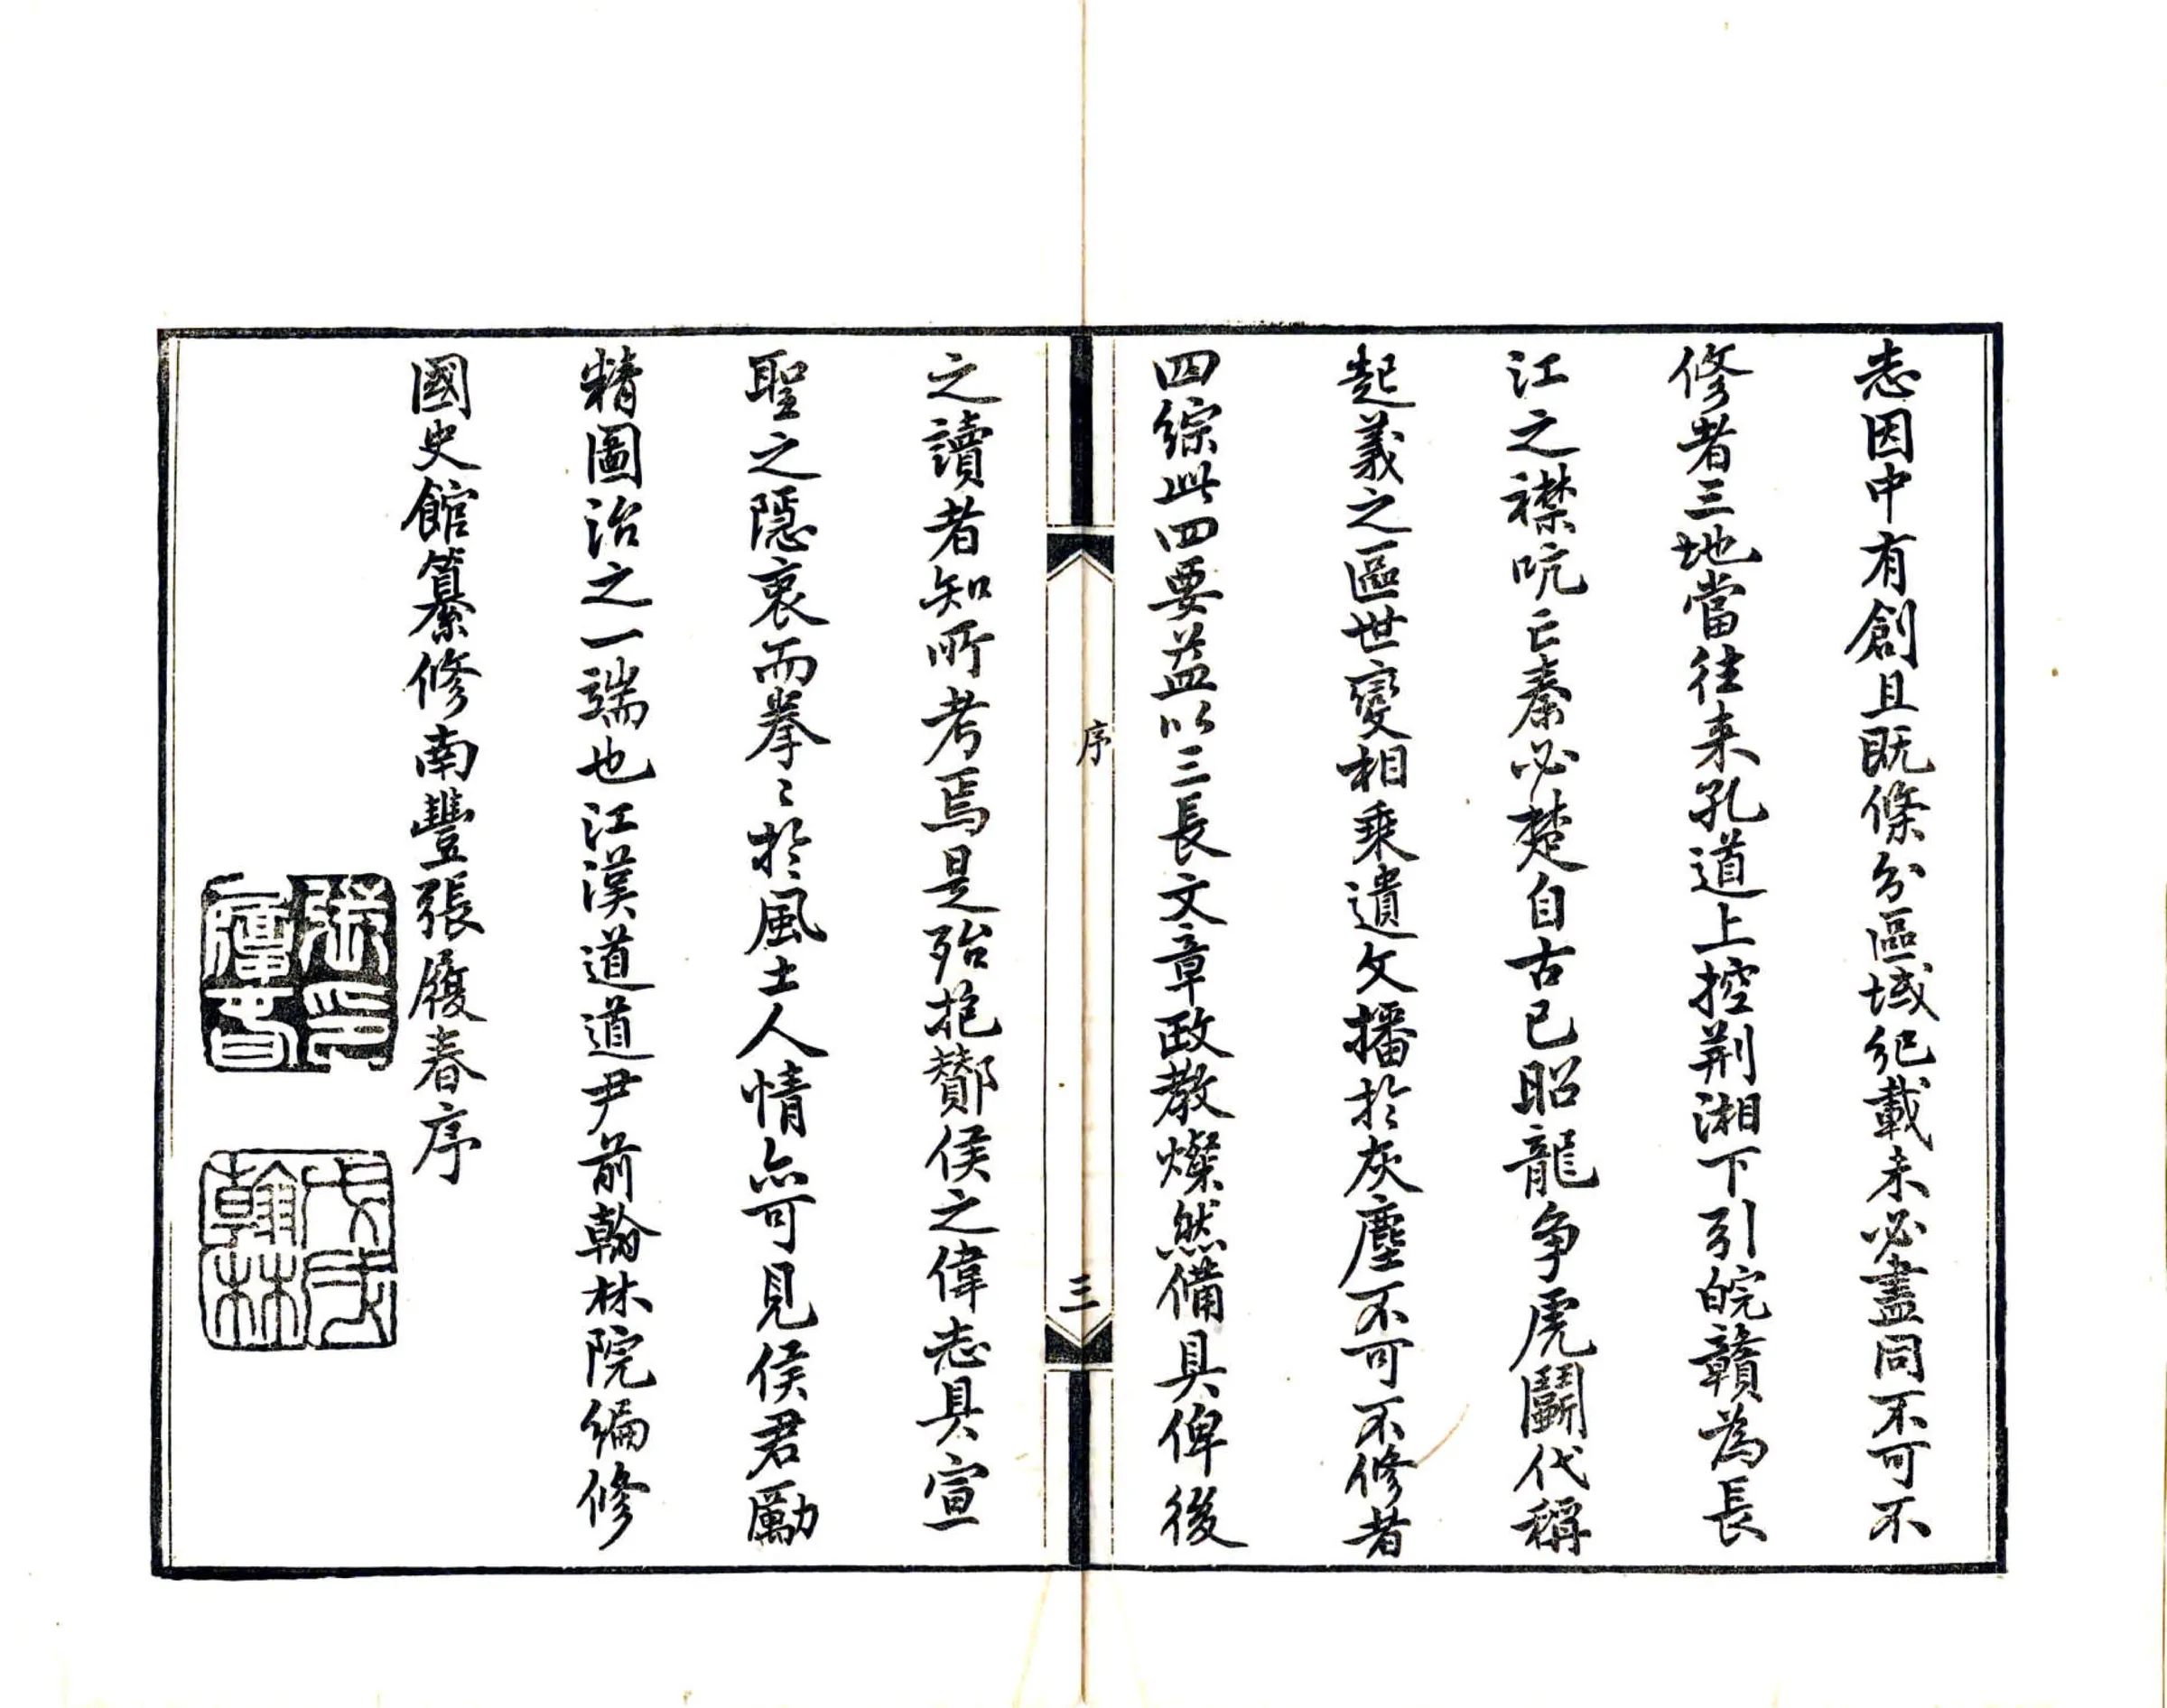 志因中有創且既條分區域紀載未必盡同不可不
修者三地當往来孔道上控荆湘下引皖贛為長
江之襟吭亡秦必楚自古已昭龍争虎鬭代稱
起義之區世變相乗遺文播於灰塵不可不修者
四綜此四要益以三長文章政教燦然備具俾後
序
三
之讀者知所考焉是殆抱鄼侯之偉志具宣
聖之隱衷而拳〻於風土人情亦可見侯君勵
精圖治之一端也江漢道道尹前翰林院編修
國史館纂修南豐張履春序
張印履春
戊戌翰林